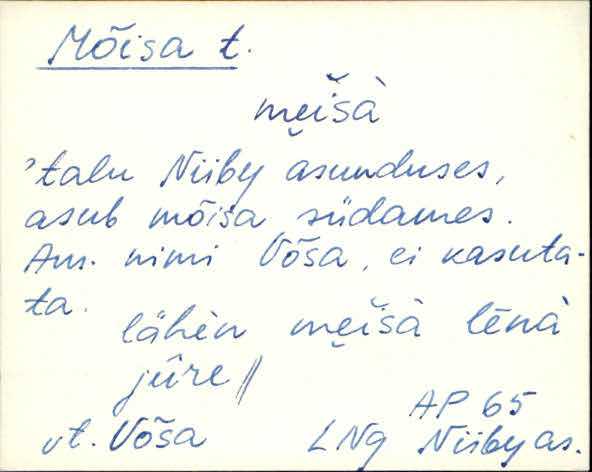 Mõisa t.
mẹišà
'talu Niiby asunduses,
asub mõisa südames.
Am. nimi Võsa, ei kasuta-
ta.
lähèn mẹišà lēnà
jūre //
AP 65
vt. Võsa LNg Niiby as.